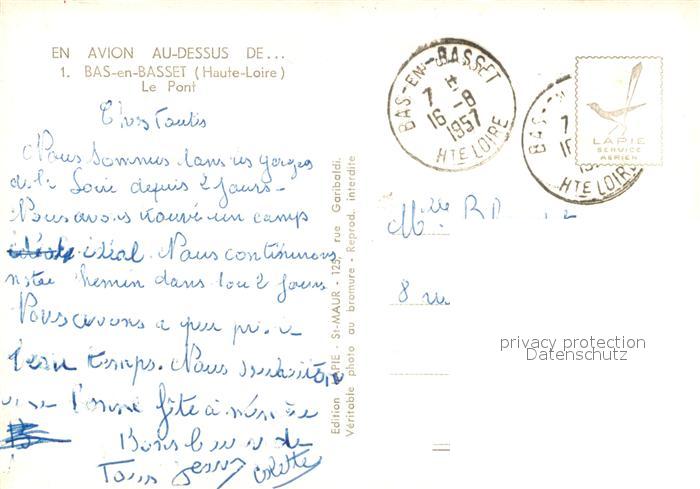 EN AVION AU-DESSUS DE...
1. BAS-en-BASSET (Haute-Loire)
Le Pont
Nous sommes dans les gorges
de la Loire depuis 2 jours -
Nous avons trouvé un camp
idéal. Nous continuerons
notre chemin dans 1 ou 2 jours
Nous avons à peu près
beau temps. Nous souhaitons
une bonne fête à mémée
Bons baisers de
Tous
Colette
Edition LAPIE - St-MAUR - 125, rue Garibaldi.
Véritable photo au bromure - Reprod. interdite
BAS-EN-BASSET
7 H
16-8
1957
HTE LOIRE
BAS-
7
HTE LOIRE
LAPIE
SERVICE
AERIEN
Mlle
8 rue
privacy protection
Datenschutz